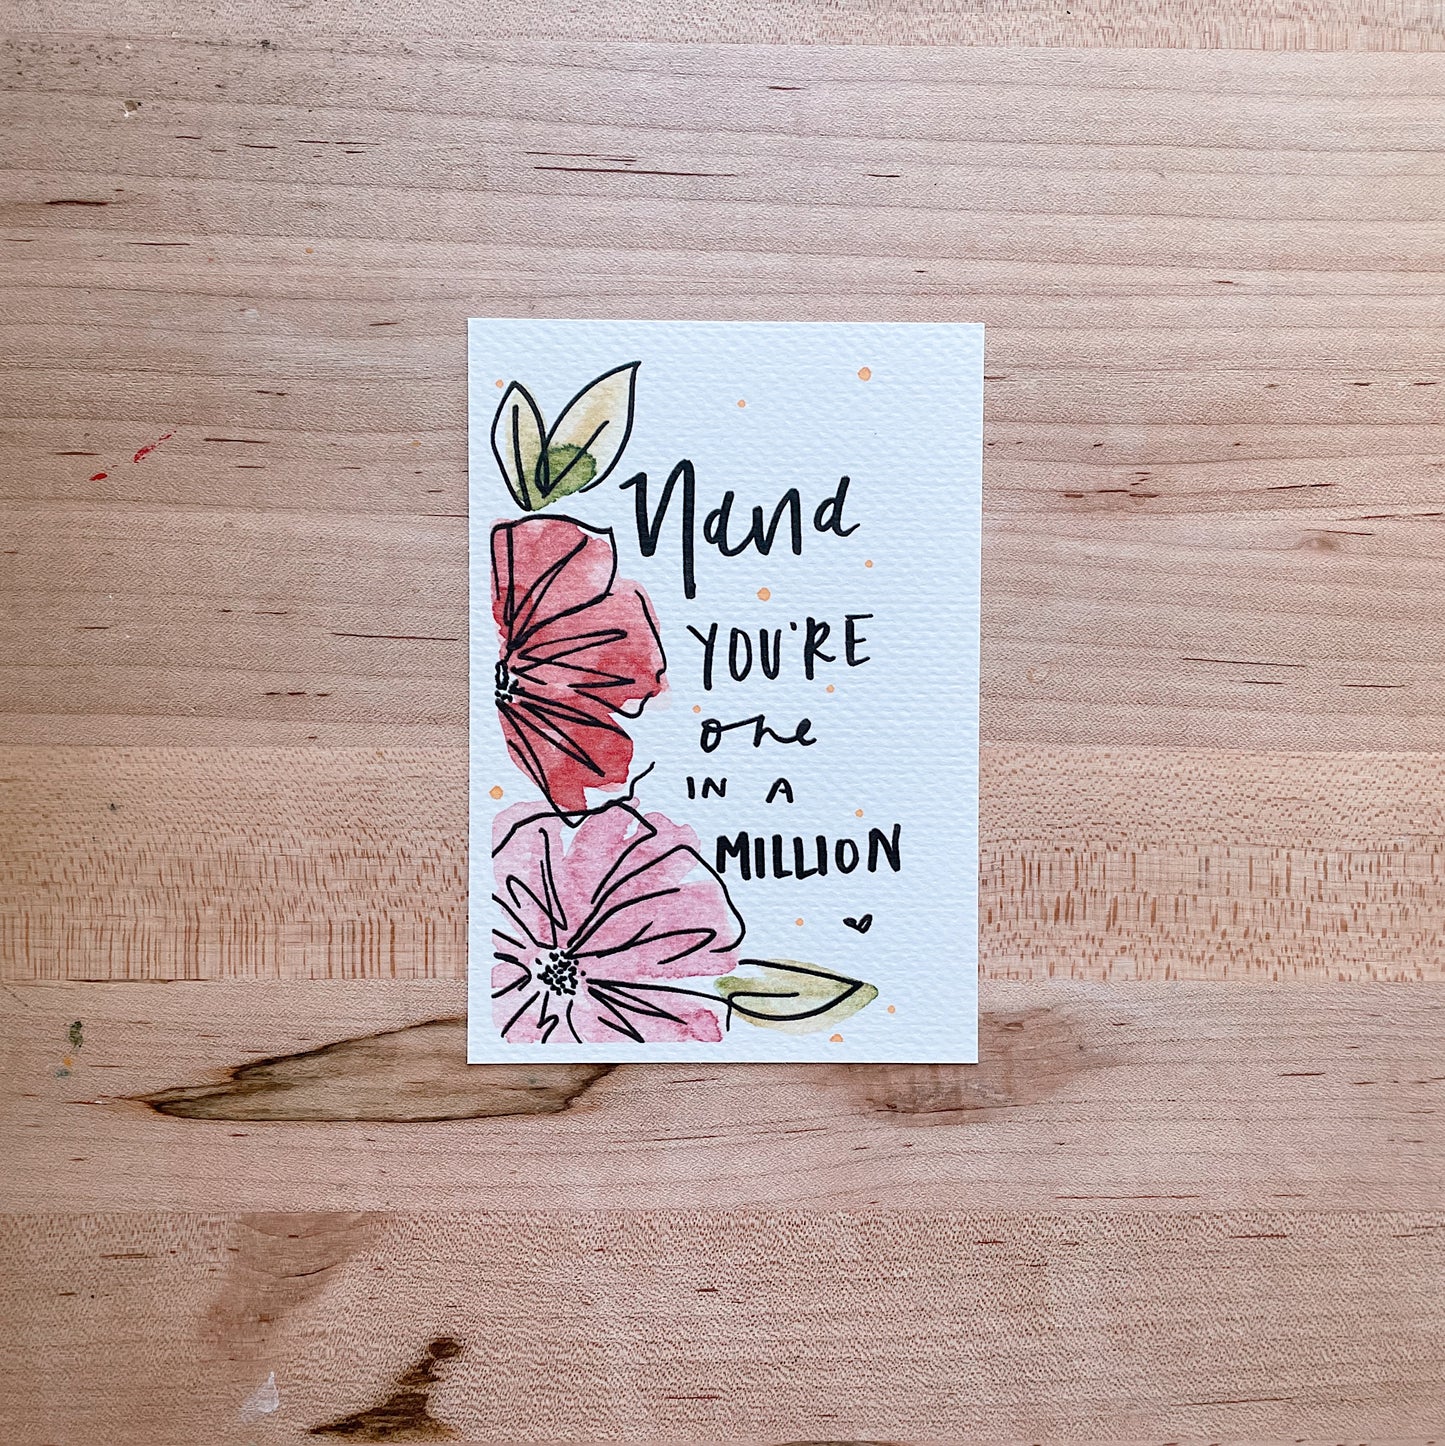 Nana
YOU'RE
one
IN A
MILLION